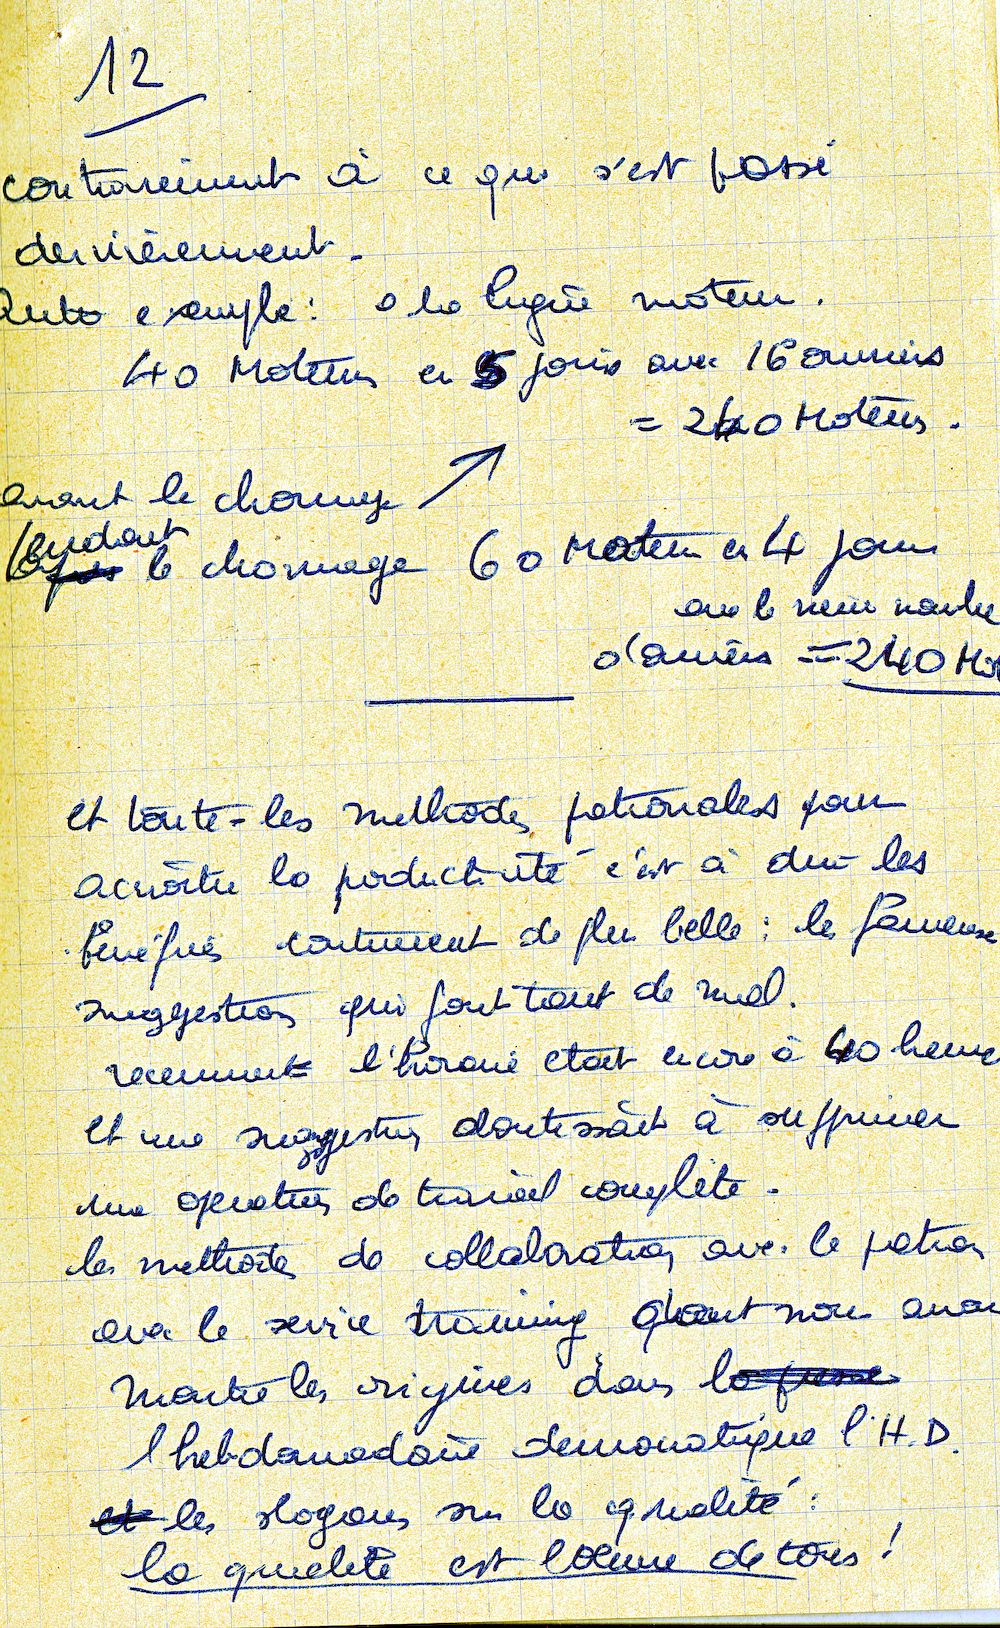 12
contrairement à ce qui s'est passé
dernièrement.
Autre exemple : a la ligne moteur.
40 Moteurs en 5 jours avec 16 ouvriers
= 240 Moteurs.
avant le chomage
pendant
le chomage 60 Moteurs en 4 jours
avec le meme nombre
d'ouvriers = 240 Mot
et toute les methodes patronales pour
acroitre la productivité c'est à dire les
bénéfices continuent de plus belle : les fameuse
suggestions qui font tant de mal.
recemment l'horaire etait encore à 40 heures
et une suggestion aboutissait à supprimer
une operation de travail complète.
les methodes de collaboration avec le patron
avec le service training dont nous avons
montre les origines dans la presse
l'hebdomadaire democratique l'H.D.
et les slogans sur la qualité :
la qualité est l'œuvre de tous !